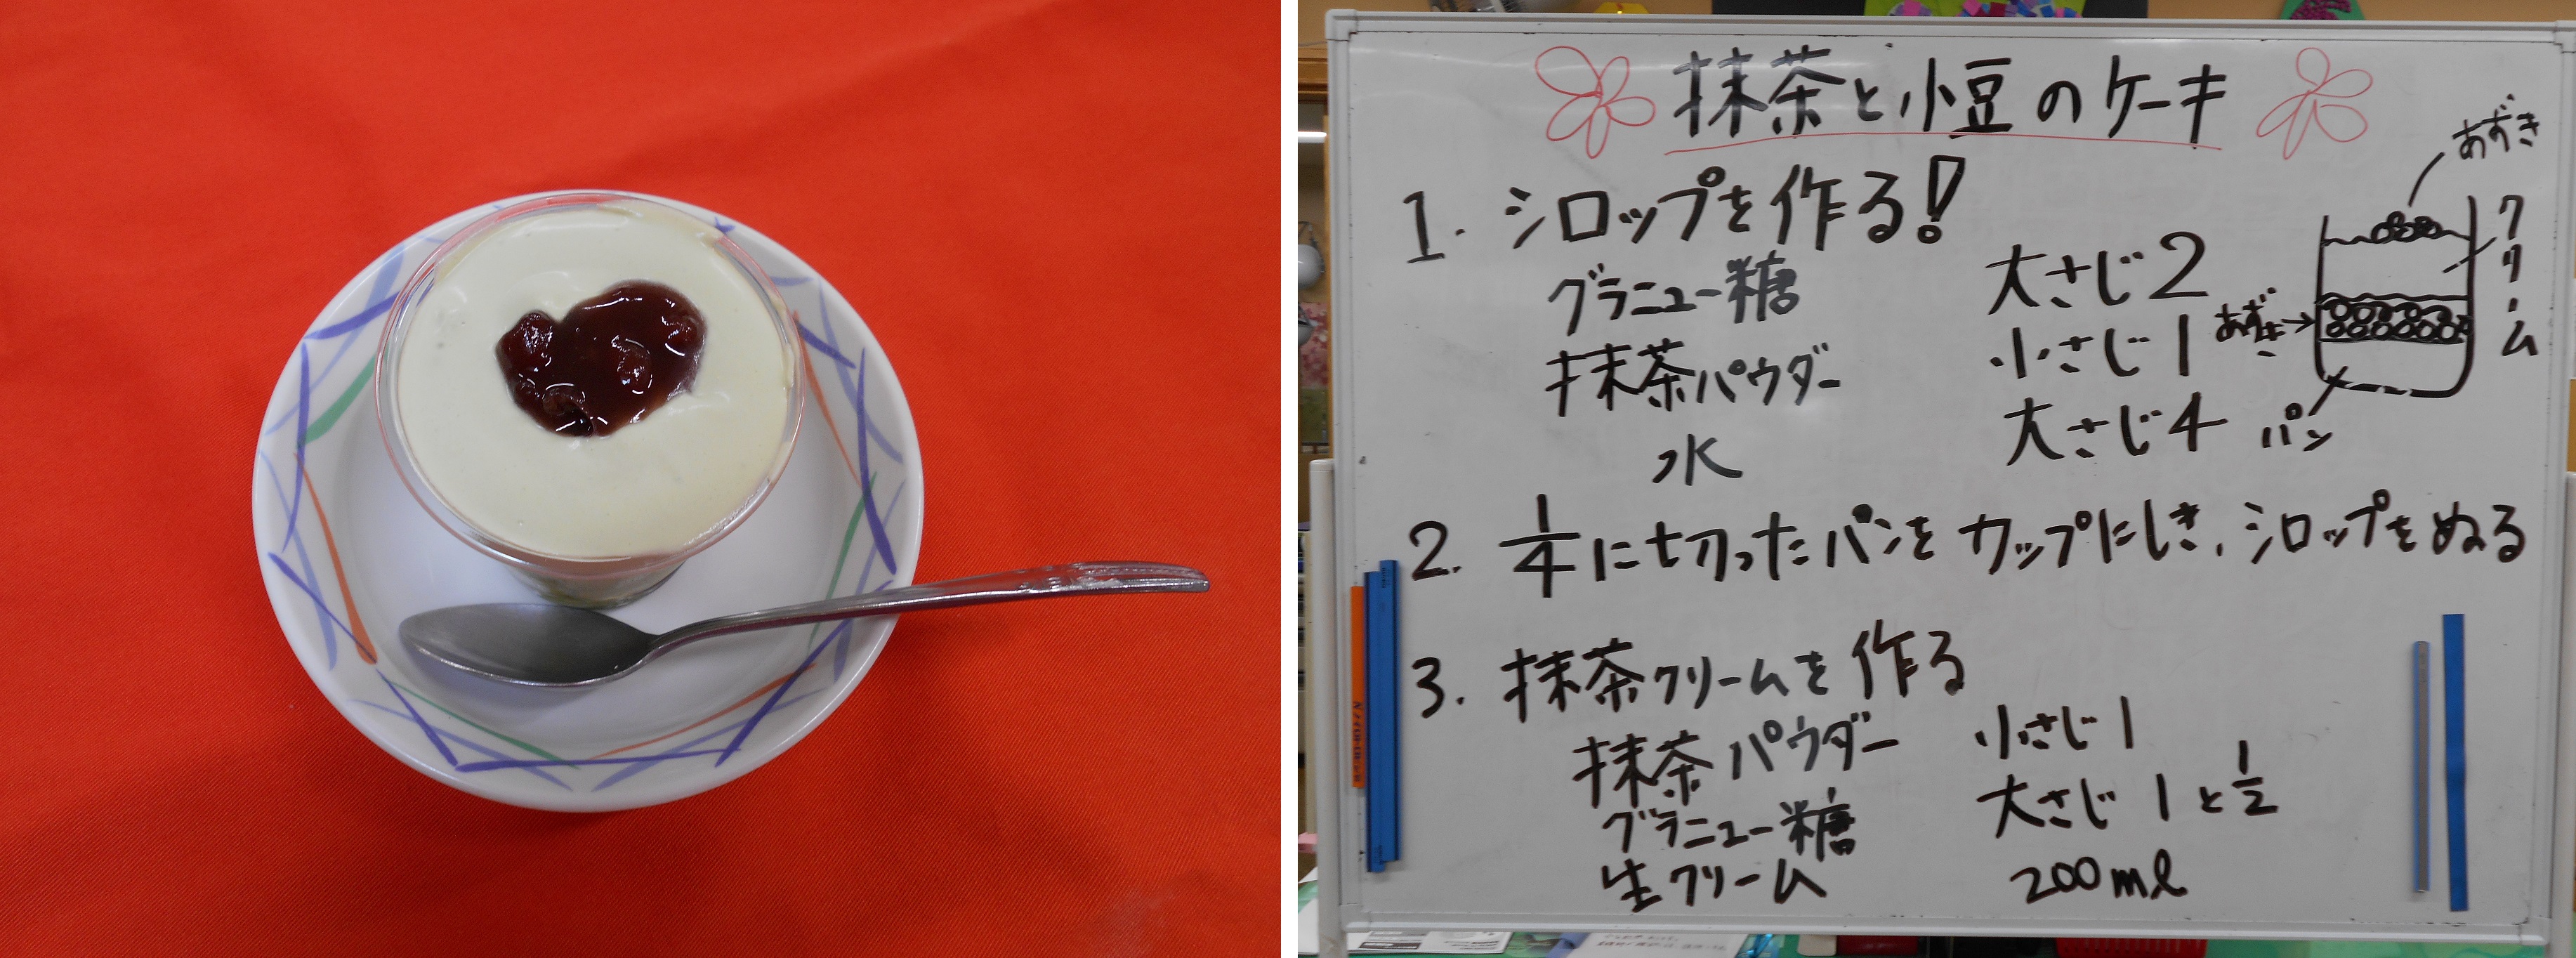 抹茶と小豆のケーキ
1. シロップを作る!
グラニュー糖 大さじ2
抹茶パウダー 小さじ1
水 大さじ4
あずき
クリーム
あずき
パン
2. 1/4に切ったパンをカップにしき、シロップをぬる
3. 抹茶クリームを作る
抹茶パウダー 小さじ1
グラニュー糖 大さじ1と1/2
生クリーム 200ml